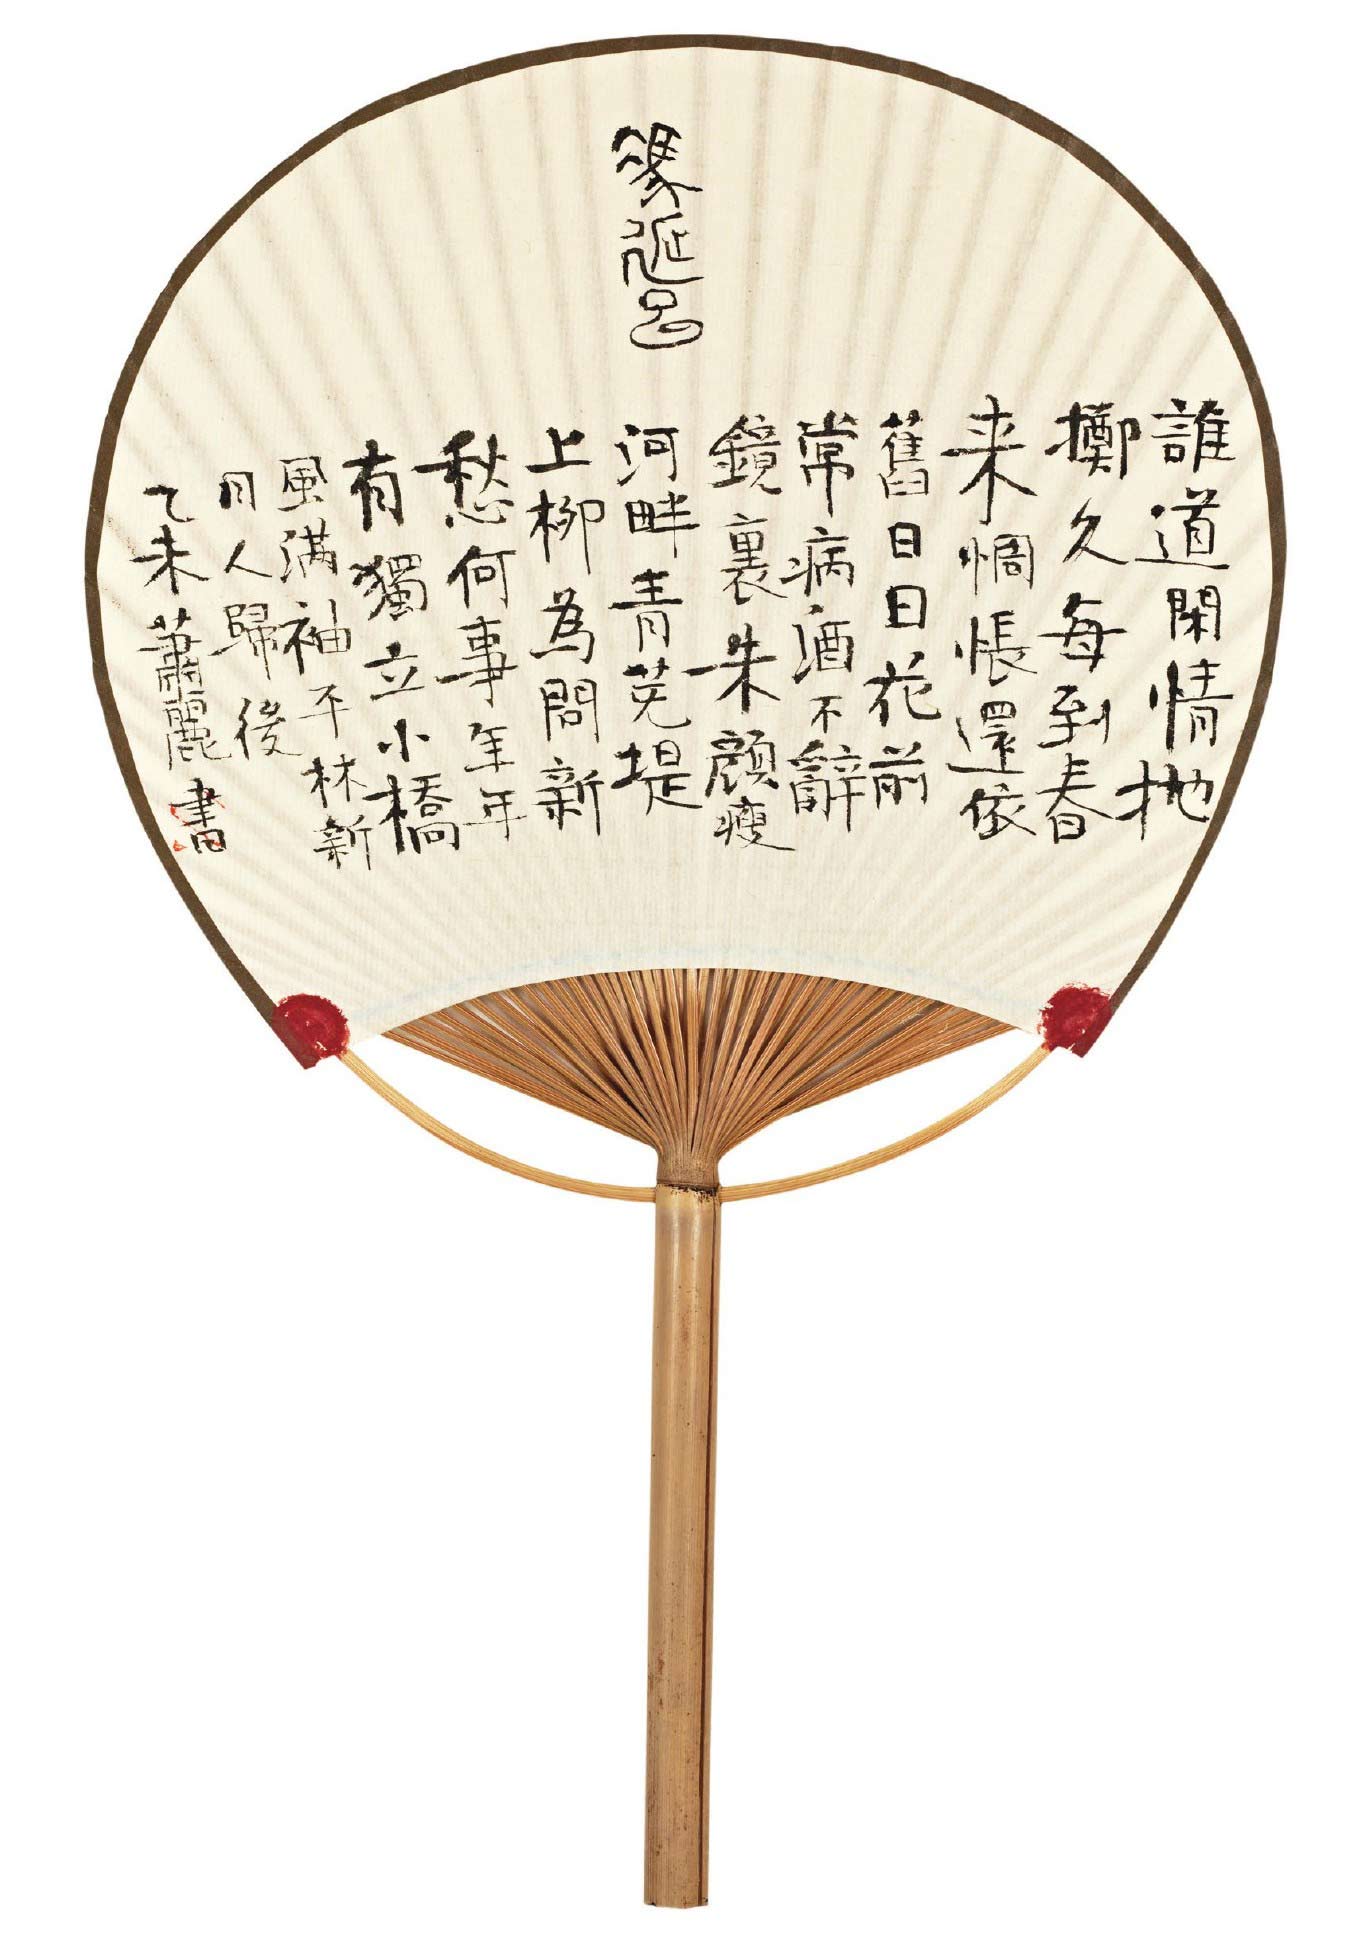 馮延巳
誰道閑情抛
擲久每到春
来惆悵還依
舊日日花前
常病酒不辭
鏡裏朱顔瘦
河畔青芜堤
上柳為問新
愁何事年年
有獨立小橋
風满袖平林新
月人歸後
乙未蕭麗書